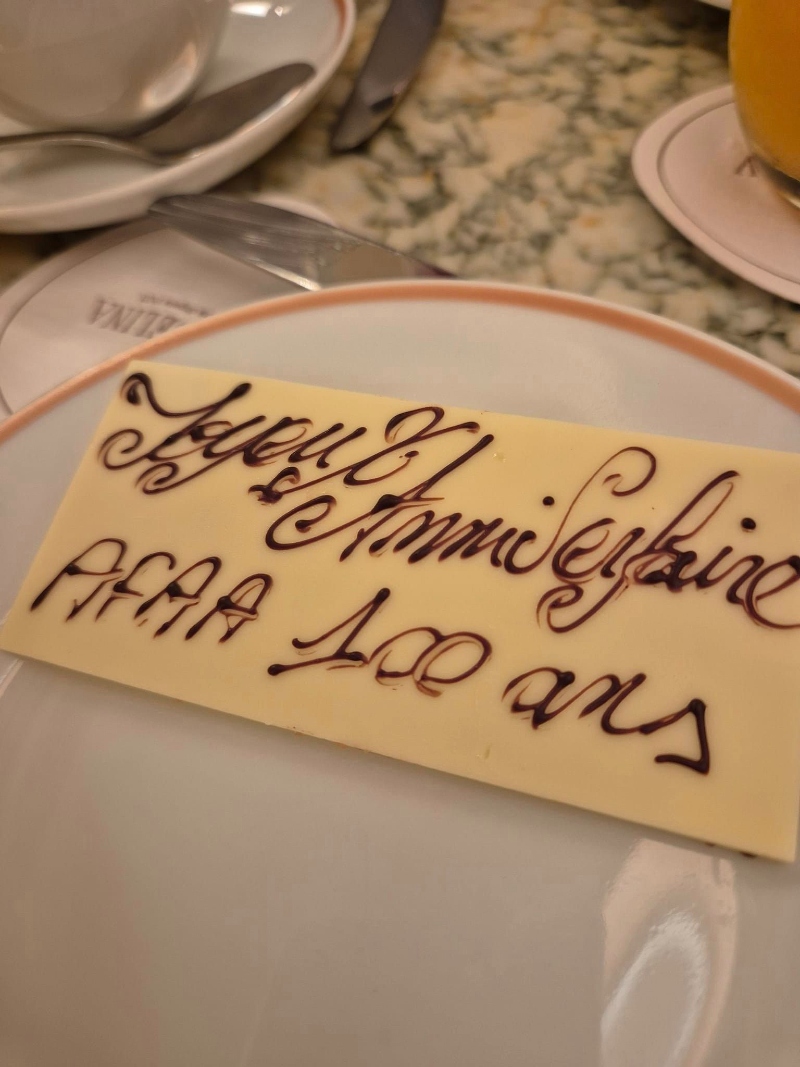 Joyeux Anniversaire
AFAA 100 ans